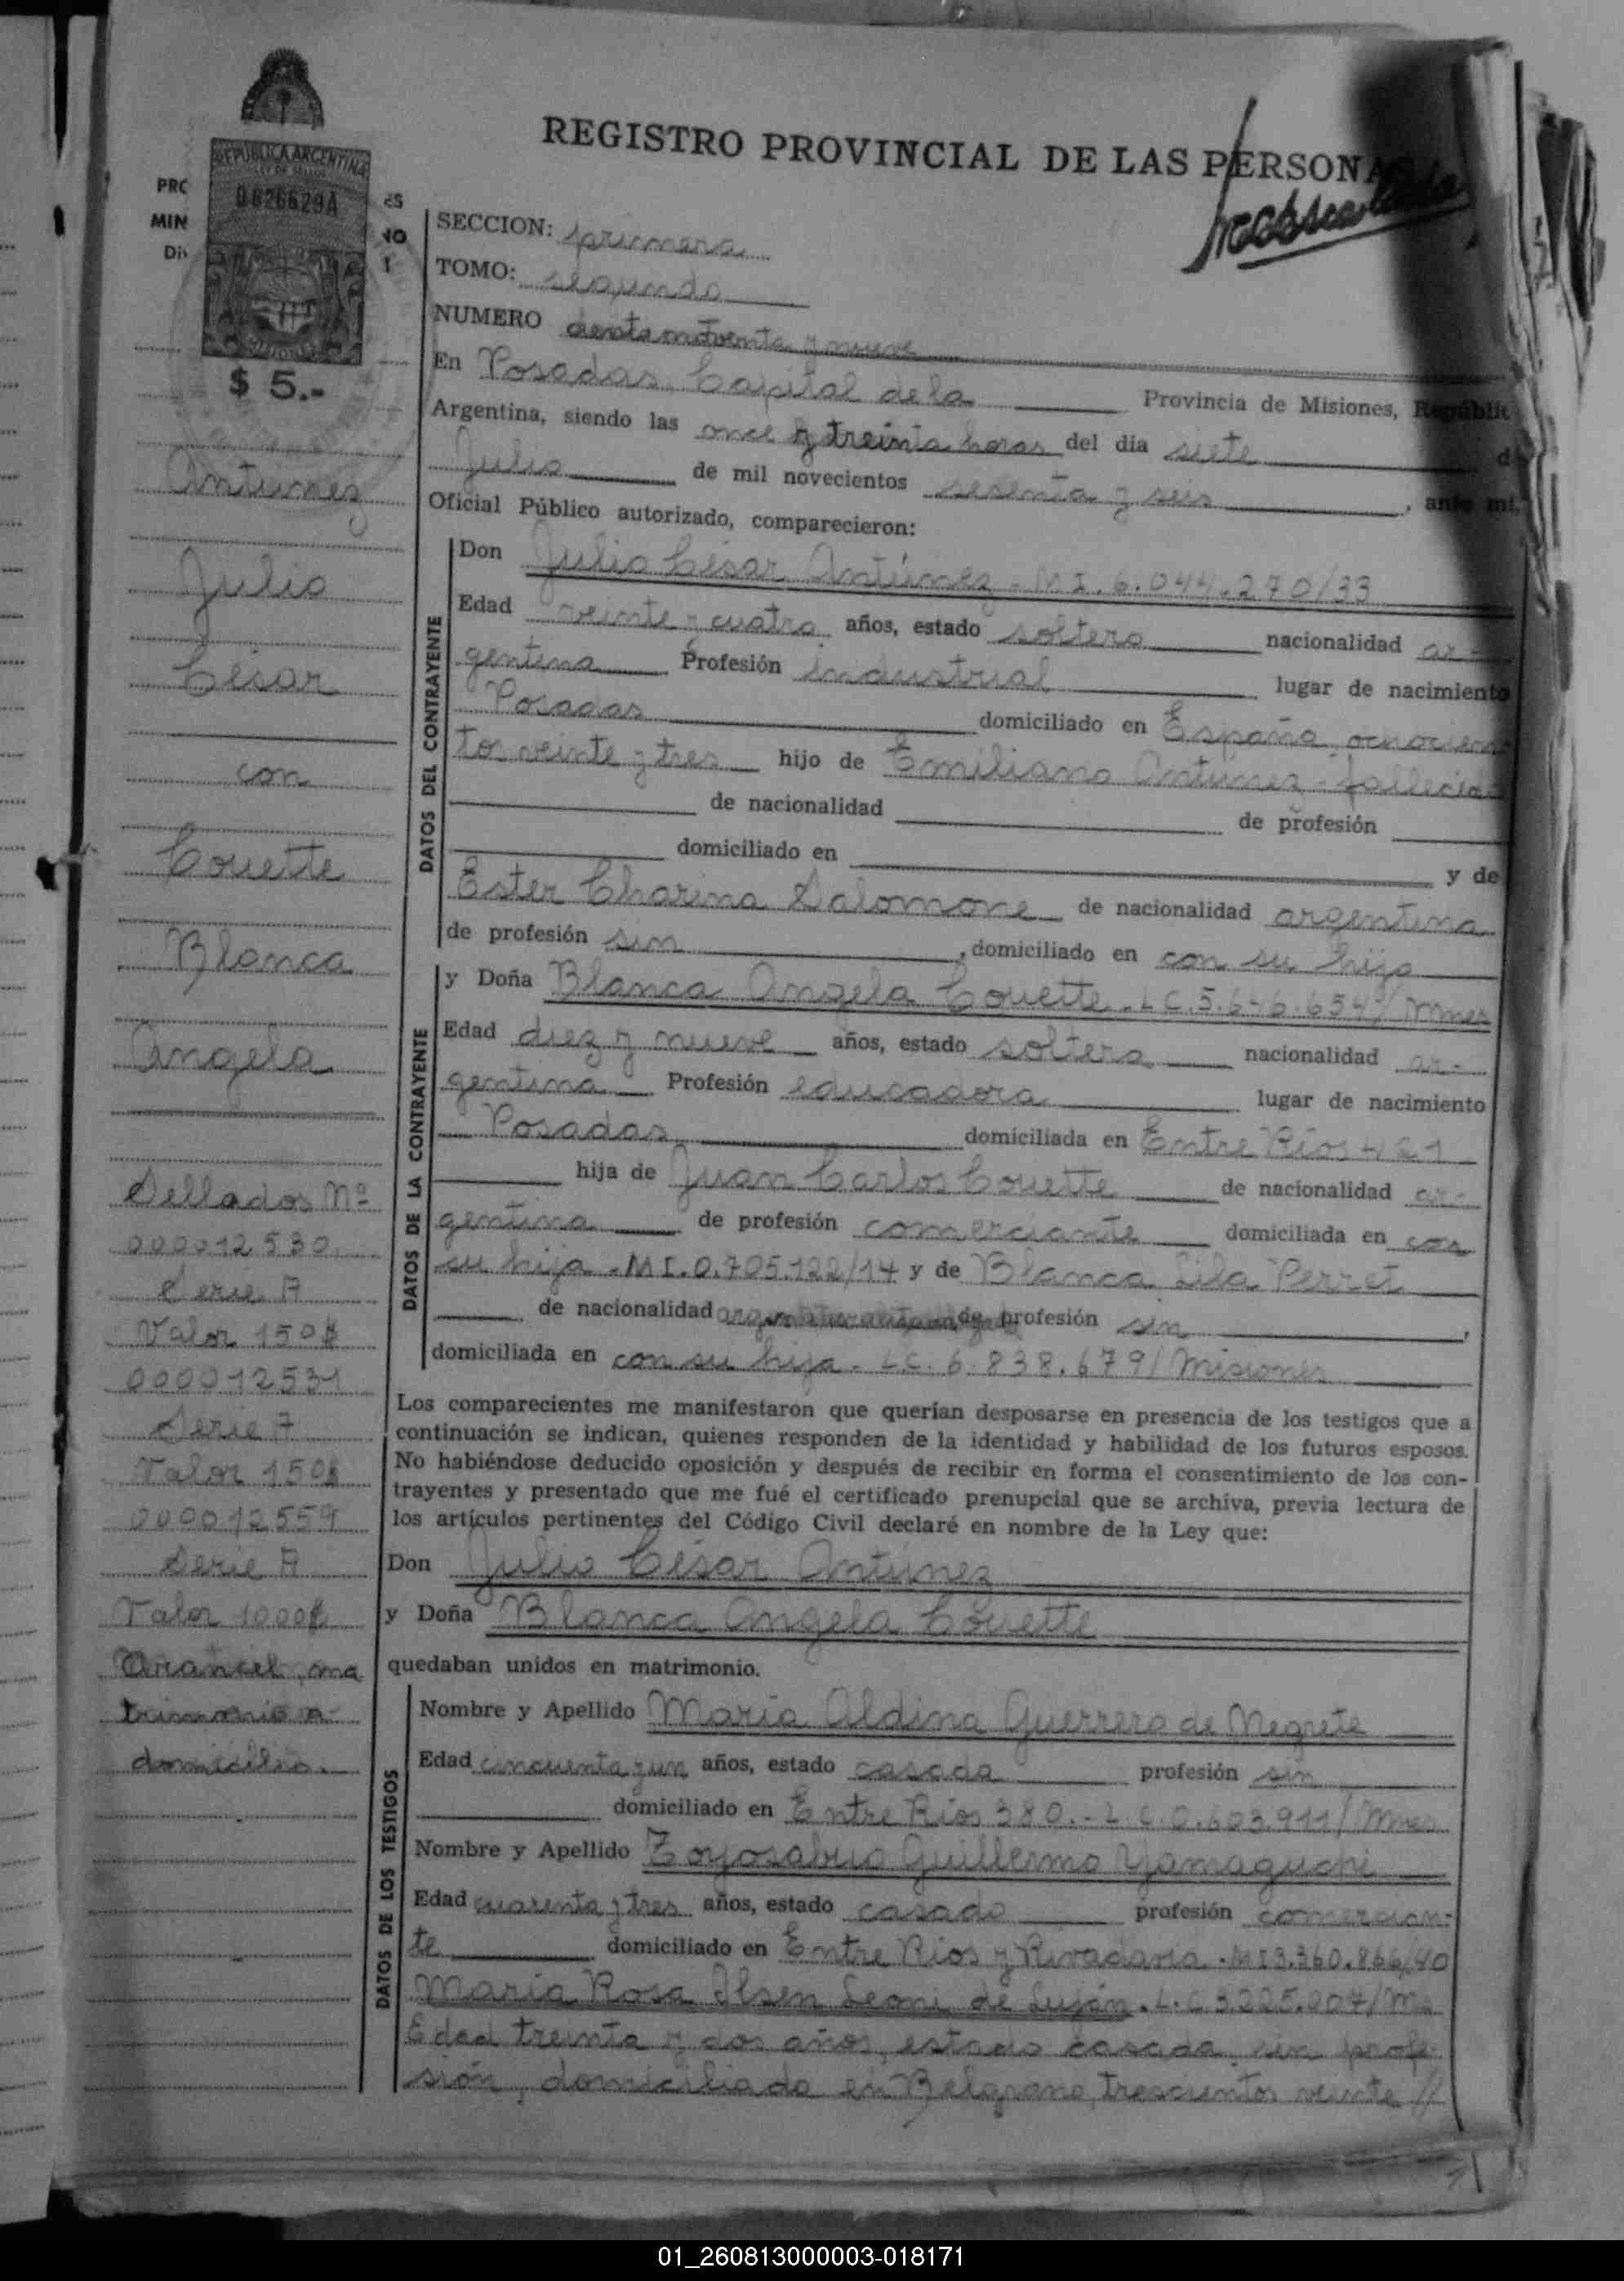 REGISTRO PROVINCIAL DE LAS PERSONAS
REPUBLICA ARGENTINA
LEY DE SELLOS
0826629A
PRO
MIN
DI
ES
NO
$ 5.-
SECCION: primera
TOMO: segundo
NUMERO ciento noventa y nueve
En Posadas, Capital de la Provincia de Misiones, Repúblic
Argentina, siendo las once y treinta horas del día siete d
Julio de mil novecientos sesenta y seis, ante mí,
Oficial Público autorizado, comparecieron:
Antúnez
Julio
César
con
Couette
Blanca
Angela
Sellados Nº
000012530
Serie A
Valor 150$
000012531
Serie A
Valor 150$
000012559
Serie A
Valor 1000$
Arancel ma
trimonio a
domicilio.
DATOS DEL CONTRAYENTE
Don Julio César Antúnez - M I. 6.044.270/33
Edad veinte y cuatro años, estado soltero nacionalidad ar-
gentina Profesión industrial lugar de nacimiento
Posadas domiciliado en España ochocien
tos veinte y tres hijo de Emiliano Antúnez - fallecido
de nacionalidad de profesión
domiciliado en y de
Ester Charina Salomone de nacionalidad argentina
de profesión sin, domiciliado en con su hijo
DATOS DE LA CONTRAYENTE
y Doña Blanca Angela Couette. L C. 5.646.654/Mnes
Edad diez y nueve años, estado soltera nacionalidad ar-
gentina Profesión educadora lugar de nacimiento
Posadas domiciliada en Entre Ríos 421
hija de Juan Carlos Couette de nacionalidad ar-
gentina de profesión comerciante domiciliada en con
su hija. M I. 0.705.122/14 y de Blanca Lila Perret
de nacionalidad de profesión sin,
domiciliada en con su hija. L.C. 6.838.679/Misiones
Los comparecientes me manifestaron que querían desposarse en presencia de los testigos que a
continuación se indican, quienes responden de la identidad y habilidad de los futuros esposos.
No habiéndose deducido oposición y después de recibir en forma el consentimiento de los con-
trayentes y presentado que me fué el certificado prenupcial que se archiva, previa lectura de
los artículos pertinentes del Código Civil declaré en nombre de la Ley que:
Don Julio César Antúnez
y Doña Blanca Angela Couette
quedaban unidos en matrimonio.
DATOS DE LOS TESTIGOS
Nombre y Apellido María Aldina Guerrero de Negrete
Edad cincuenta y un años, estado casada profesión sin
domiciliado en Entre Ríos 380.- L. C. 0.603.911/Mnes
Nombre y Apellido Toyosabuo Guillermo Yamaguchi
Edad cuarenta y tres años, estado casado profesión comercian-
te domiciliado en Entre Ríos y Rivadavia. M I 3.360.866/40
María Rosa Ilsen Leoni de Luján. L. C 3.225.007/Ms
Edad treinta y dos años, estado casada, sin profe
sión, domiciliada en Belgrano, trescientos veinte //
01_260813000003-018171